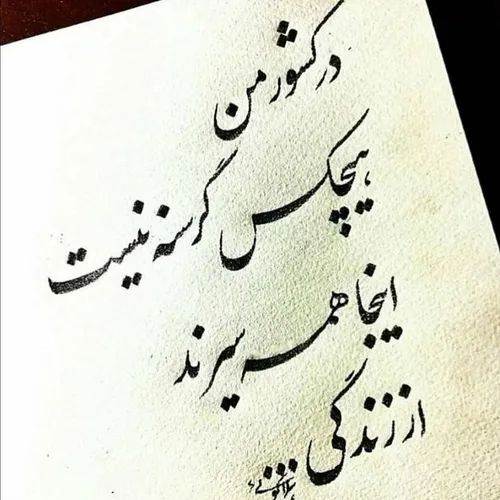 در کشور من
هیچکس گرسنه نیست
اینجا همه سیرند
از زندگی